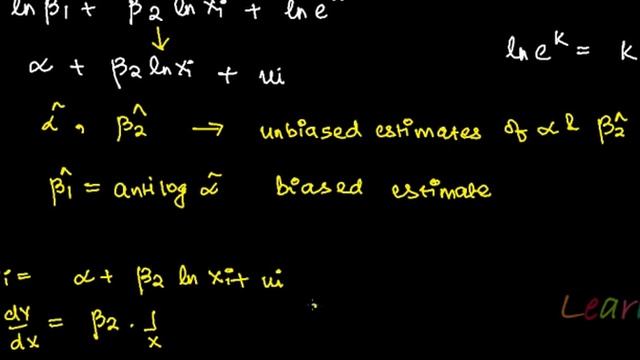 ln β1 + β2 ln xi + ln e
ln e^k = k
α + β2 ln xi + ui
α̂ , β̂2 → unbiased estimates of α & β̂2
β̂1 = antilog α̂ biased estimate
i = α + β2 ln xi + ui
dy/dx = β2 · 1/x
Lear